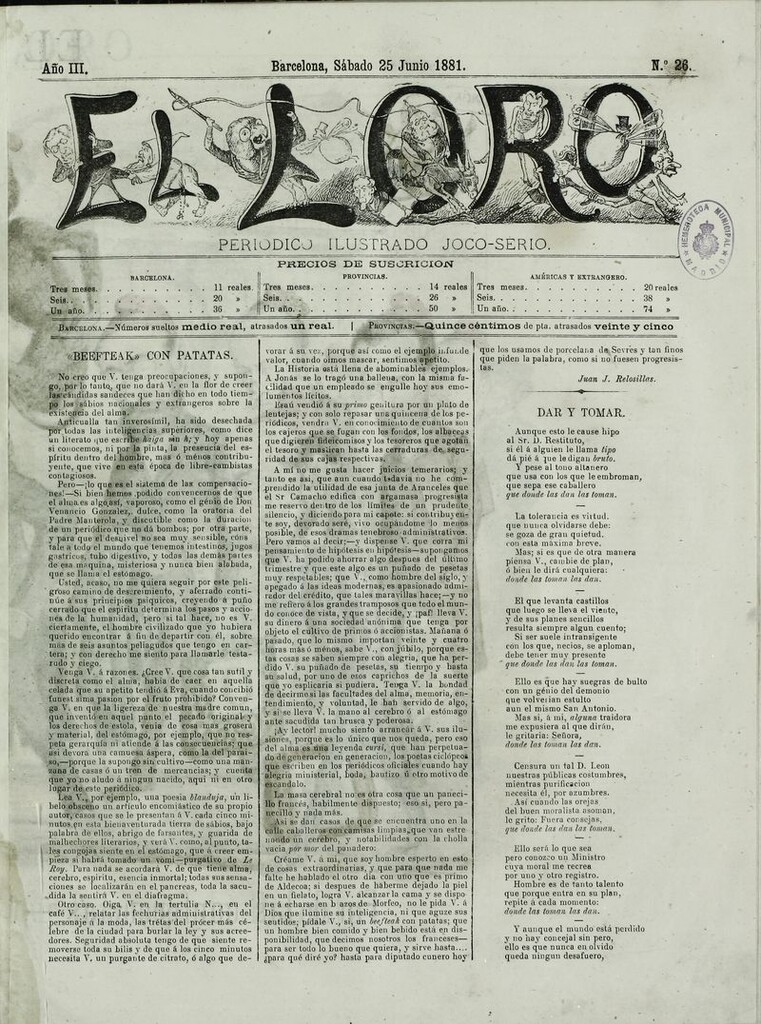 Año III.
Barcelona, Sábado 25 Junio 1881.
N.º 26.
EL LORO
PERIODICO ILUSTRADO JOCO-SERIO.
HEMEROTECA MUNICIPAL
MADRID
PRECIOS DE SUSCRICION
BARCELONA.
Tres meses. . . . . . . . . . . 11 reales
Seis. . . . . . . . . . . . . 20 »
Un año. . . . . . . . . . . . 36 »
PROVINCIAS.
Tres meses. . . . . . . . . . . 14 reales
Seis. . . . . . . . . . . . . 26 »
Un año. . . . . . . . . . . . 50 »
AMÉRICAS Y EXTRANGERO.
Tres meses. . . . . . . . . . . 20 reales
Seis. . . . . . . . . . . . . 38 »
Un año. . . . . . . . . . . . 74 »
BARCELONA.—Números sueltos medio real, atrasados un real. | PROVINCIAS.—Quince céntimos de pta. atrasados veinte y cinco
«BEEFTEAK» CON PATATAS.
No creo que V. tenga preocupaciones, y supongo,
por lo tanto, que no dará V. en la flor de creer
las cándidas sandeces que han dicho en todo tiempo
los sábios nacionales y extrangeros sobre la
existencia del alma.
Anticualla tan inverosímil, ha sido desechada
por todas las inteligencias superiores, como dice
un literato que escribe haiga sin h; y hoy apenas
si conocemos, ni por la pinta, la presencia del espíritu
dentro del hombre, mas ó ménos contribuyente,
que vive en esta época de libre-cambistas
contagiosos.
Pero—¡lo que es el sistema de las compensaciones!—Si
bien hemos podido convencernos de que
el alma es algo así, vaporoso, como el génio de Don
Venancio Gonzalez, dulce, como la oratoria del
Padre Manterola, y discutible como la duracion
de un periódico que no dá bombos; por otra parte,
y para que el desnivel no sea muy sensible, consta
le a todo el mundo que tenemos intestinos, jugos
gástricos, tubo digestivo, y todas las demás partes
de esa máquina, misteriosa y nunca bien alabada,
que se llama el estómago.
Usted, acaso, no me quiera seguir por este peligroso
camino de descreimiento, y aferrado continúe
á sus principios psíquicos, creyendo á puño
cerrado que el espíritu determina los pasos y acciones
de la humanidad, pero si tal hace, no es V.
ciertamente, el hombre civilizado que yo hubiera
querido encontrar á fin de departir con él, sobre
mas de seis asuntos peliagudos que tengo en cartera;
y con derecho me siento para llamarle testarudo
y ciego.
Venga V. á razones. ¿Cree V. que cosa tan sutil y
discreta como el alma, habia de caer en aquella
celada que su apetito tendió á Eva, cuando concibió
funestísima pasion por el fruto prohibido? Convenga
V. en que la ligereza de nuestra madre comun,
que inventó en aquel punto el pecado original y
los derechos de estola, venía de cosa mas grosera
y material, del estómago, por ejemplo, que no respeta
gerarquía ni atiende á las consecuencias; que
así devora una camuesa áspera, como la del paraiso,—porque
la supongo sin cultivo—como una manzana
de casas ó un tren de mercancias; y cuenta
que yo no aludo á ningun nacido, aquí ni en otro
lugar de este periódico.
Lea V., por ejemplo, una poesía blanduja, un libelo
obsceno un artículo encomiástico de su propio
autor, casos que se le presentan á V. cada cinco minutos
en esta bienaventurada tierra de sábios, bajo
palabra de ellos, abrigo de farsantes, y guarida de
malhechores literarios, y verá V. como, al punto, tales
congojas siente en el estómago, que á creer empieza
si habrá tomado un vomi—purgativo de Le
Roy. Para nada se acordará V. de que tiene alma,
cerebro, espíritu, esencia inmortal; todas sus sensaciones
se localizarán en el pancreas, toda la sacudida
la sentirá V. en el diafragma.
Otro caso. Oiga V. en la tertulia N..., en el
café V..., relatar las fechurías administrativas del
personaje á la moda, las tretas del prócer más célebre
de la ciudad para burlar la ley y sus acreedores.
Seguridad absoluta tengo de que siente removerse
toda su bilis y de que á los cinco minutos
necesita V. un purgante de citrato, ó algo que devorar
á su vez, porque así como el ejemplo infunde
valor, cuando oimos mascar, sentimos apetito.
La Historia está llena de abominables ejemplos.
A Jonás se lo tragó una ballena, con la misma facilidad
que un empleado se engulle hoy sus emolumentos
lícitos.
Esaú vendió á su primo genitura por un plato de
lentejas; y con solo repasar una quincena de los periódicos,
vendrá V. en conocimiento de cuantos son
los cajeros que se fugan con los fondos, los albaceas
que digieren fideicomisos y los tesoreros que agotan
el tesoro y mastican hasta las cerraduras de seguridad
de sus cajas respectivas.
A mí no me gusta hacer juicios temerarios; y
tanto es así, que aun cuando todavía no he comprendido
la utilidad de esa junta de Aranceles que
el Sr Camacho edifica con argamasa progresista
me reservo dentro de los límites de un prudente
silencio, y diciendo para mi capote: si contribuyente
soy, devorado seré, vivo ocupándome lo menos
posible, de esos dramas tenebroso-administrativos.
Pero vamos al decir;—y dispense V. que corra mi
pensamiento de hipótesis en hipótesis—supongamos
que V. ha podido ahorrar algo despues del último
trimestre y que este algo es un puñado de pesetas
muy respetables; que V., como hombre del siglo, y
apegado á las ideas modernas, es apasionado admirador
del crédito, que tales maravillas hace;—y no
me refiero á los grandes tramposos que todo el mundo
conoce de vista, y que se decide, y ¡paf! lleva V.
su dinero á una sociedad anónima que tenga por
objeto el cultivo de primos ó accionistas. Mañana ó
pasado, que lo mismo importan veinte y cuatro
horas más ó ménos, sabe V., con júbilo, porque estas
cosas se saben siempre con alegria, que ha perdido
V. su puñado de pesetas, su tiempo y hasta
su salud, por uno de esos caprichos de la suerte
que yo esplicaria si pudiera. Tenga V. la bondad
de decirme si las facultades del alma, memoria, entendimiento,
y voluntad, le han servido de algo,
y si se lleva V. la mano al cerebro ó al estómago
ante sacudida tan brusca y poderosa.
¡Ay lector! mucho siento arrancar á V. sus ilusiones,
porque es lo único que nos queda, pero eso
del alma es una leyenda cursi, que han perpetuado
de generacion en generacion, los poetas ciclópeos
que escriben en los periódicos oficiales cuando hay
alegría ministerial, boda, bautizo ú otro motivo de
escándalo.
La masa cerebral no es otra cosa que un panecillo
francés, habilmente dispuesto; eso si, pero panecillo
y nada más.
Así se dan casos de que se encuentra uno en la
calle caballeros con camisas limpias, que van estrenondo
un cerebro, y notabilidades con la cholla
vacía por mor del panadero:
Créame V. á mí, que soy hombre esperto en esto
de cosas extraordinarias, y que para que nada me
falte he hablado el otro dia con uno que es primo
de Aldecoa; si despues de haberme dejado la piel
en un fielato, logra V. alcanzar la cama y se dispone
á echarse en brazos de Morfeo, no le pida V. á
Dios que ilumine su inteligencia, ni que aguze sus
sentidos; pídale V., si, un beefteak con patatas; que
un hombre bien comido y bien bebido está en disponibilidad,
que decimos nosotros los franceses—
para ser todo lo bueno que quiera, y sirve hasta....
¿para qué diré yo? hasta para diputado cunero hoy
que los usamos de porcelana de Sevres y tan finos
que piden la palabra, como si no fuesen progresistas.
Juan J. Relosillas.
DAR Y TOMAR.
Aunque esto le cause hipo
al Sr. D. Restituto,
si él á alguien le llama tipo
dá pié á que le digan bruto.
Y pese al tono altanero
que usa con los que le embroman,
que sepa ese caballero
que donde las dan las toman.
—
La tolerancia es virtud,
que nunca olvidarse debe:
se goza de gran quietud,
con esta máxima breve.
Mas; si es que de otra manera
piensa V., cambie de plan,
ó bien le dirá cualquiera:
donde las toman las dan.
—
El que levanta castillos
que luego se lleva el viento,
y de sus planes sencillos
resulta siempre algun cuento;
Si ser suele intransigente
con los que, necios, se aploman,
debe tener muy presente
que donde las dan las toman.
—
Ello es que hay suegras de bulto
con un génio del demonio
que volverian estulto
aun el mismo San Antonio.
Mas si, á mi, alguna traidora
me expusiera al que dirán,
le gritaria: Señora,
donde las toman las dan.
—
Censura un tal D. Leon
nuestras públicas costumbres,
mientras purificacion
necesita él, por azumbres.
Así cuando las orejas
del buen moralista asoman,
le grito: Fuera consejas,
que donde las dan las toman.
—
Ello será lo que sea
pero conozco un Ministro
cuya moral me recrea
por uno y otro registro.
Hombre es de tanto talento
que porque entra en su plan,
repite á cada momento:
donde las toman las dan.
—
Y aunque el mundo está perdido
y no hay concejal sin pero,
ello es que nunca en olvido
queda ningun desafuero,